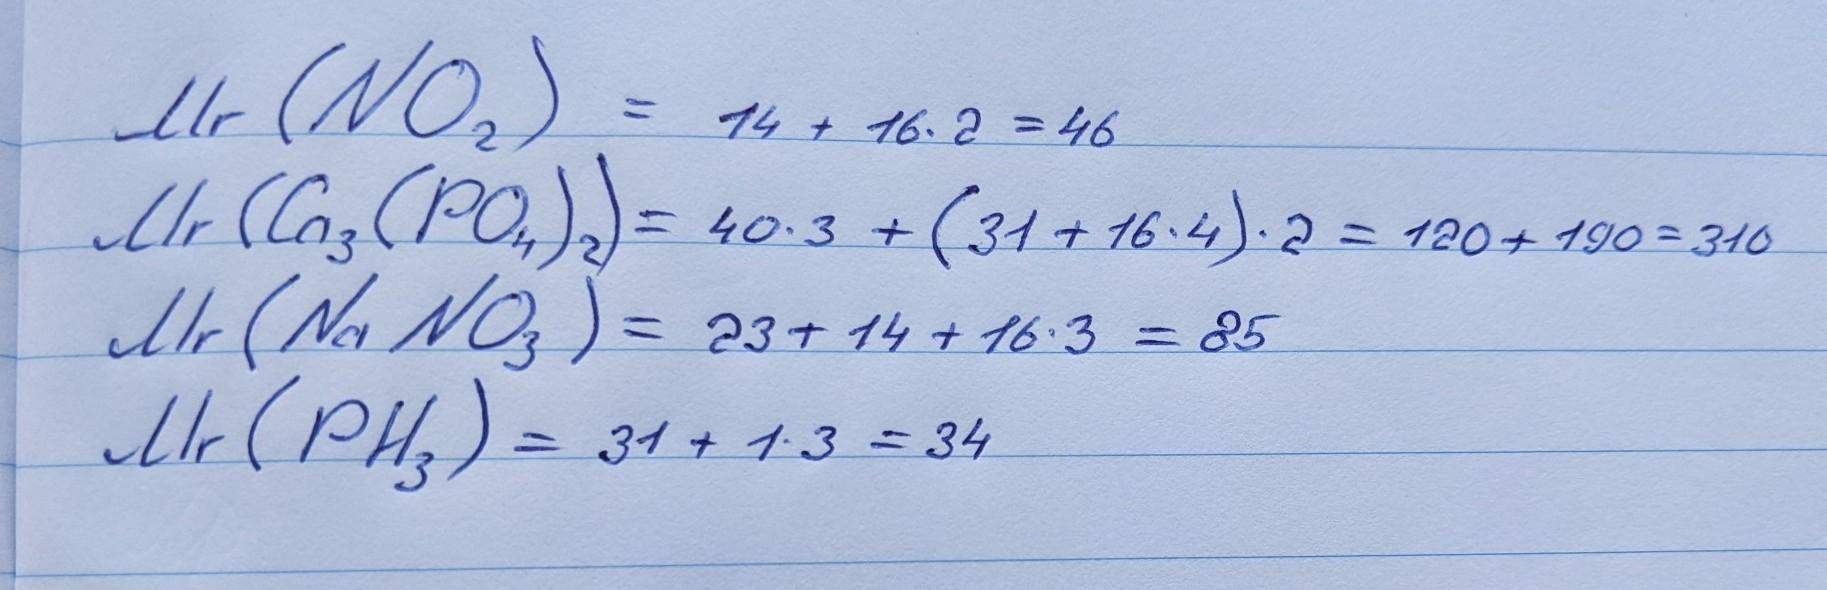 Mr (NO₂) = 14 + 16·2 = 46
Mr (Ca₃(PO₄)₂) = 40·3 + (31 + 16·4)·2 = 120 + 190 = 310
Mr (NaNO₃) = 23 + 14 + 16·3 = 85
Mr (PH₃) = 31 + 1·3 = 34